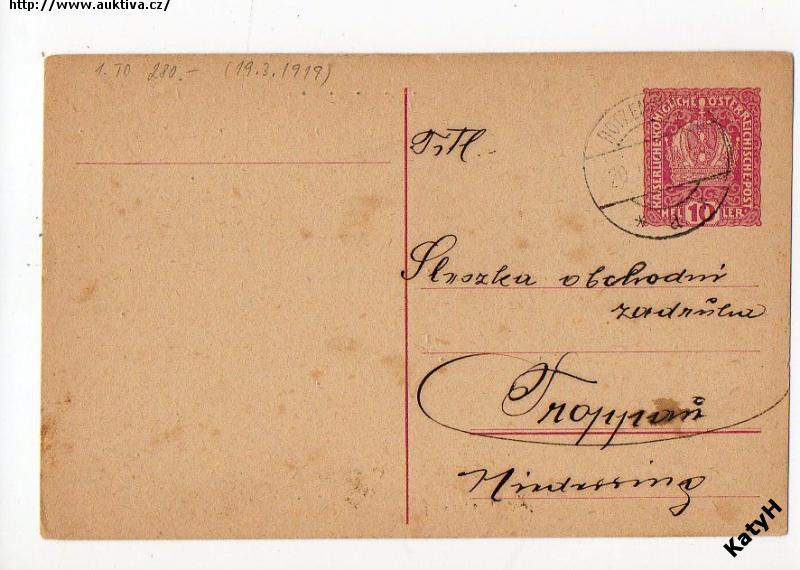 http://www.auktiva.cz/
1. TO 280.- (19.3.1919)
KAISERLICHE KÖNIGLICHE ÖSTERREICHISCHE POST
HELLER
10
d
Titl.
Slezka obchodní
zadružna
Troppau
Niederring
KatyH